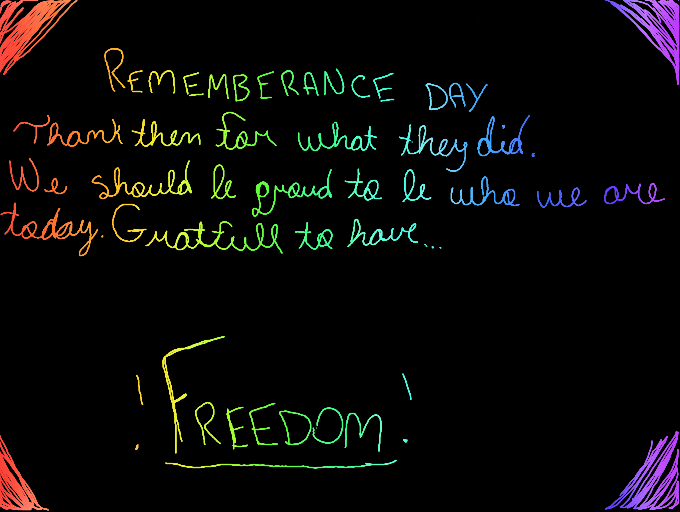 REMEMBERANCE DAY
Thank them for what they did.
We should be proud to be who we are
today. Gratfull to have...
! FREEDOM !